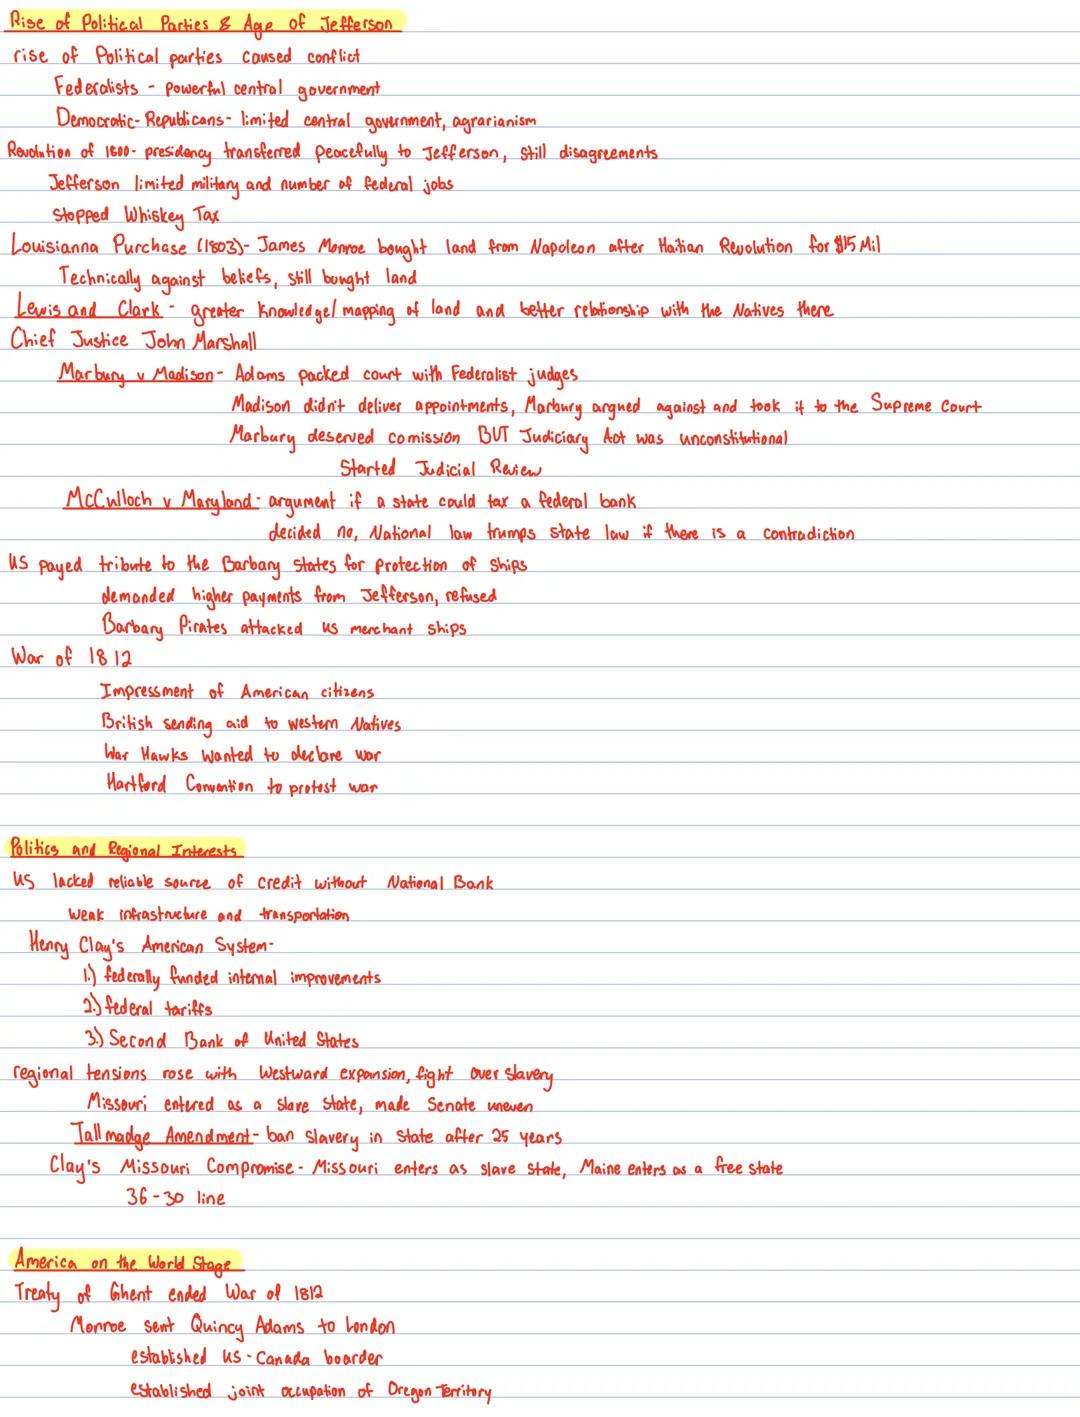 Rise of Political Parties & Age of Jefferson
rise of Political parties caused conflict
Federalists - powerful central government
Democratic-Republicans- limited central government, agrarianism
Revolution of 1800- presidency transferred peacefully to Jefferson, still disagreements
Jefferson limited military and number of federal jobs
Stopped Whiskey Tax
Louisianna Purchase (1803)- James Monroe bought land from Napoleon after Haitian Revolution for $15 Mil
Technically against beliefs, still bought land
Lewis and Clark - greater knowledge/mapping of land and better relationship with the Natives there
Chief Justice John Marshall
Marbury v Madison- Adams packed court with Federalist judges
Madison didn't deliver appointments, Marbury argued against and took it to the Supreme Court
Marbury deserved comission BUT Judiciary Act was unconstitutional
Started Judicial Review
McCulloch v Maryland- argument if a state could tax a federal bank
decided no, National law trumps state law if there is a contradiction
US payed tribute to the Barbary states for protection of ships
demanded higher payments from Jefferson, refused
Barbary Pirates attacked US merchant ships
War of 1812
Impressment of American citizens
British sending aid to western Natives
War Hawks wanted to declare war
Hartford Convention to protest war
Politics and Regional Interests
US lacked reliable source of credit without National Bank
weak infrastructure and transportation
Henry Clay's American System-
1.) federally funded internal improvements
2.) federal tariffs
3.) Second Bank of United States
regional tensions rose with Westward expansion, fight over slavery
Missouri entered as a slave state, made Senate uneven
Tallmadge Amendment- ban slavery in state after 25 years
Clay's Missouri Compromise- Missouri enters as slave state, Maine enters as a free state
36-30 line
America on the World Stage
Treaty of Ghent ended War of 1812
Monroe sent Quincy Adams to London
established US-Canada boarder
established joint occupation of Oregon Territory